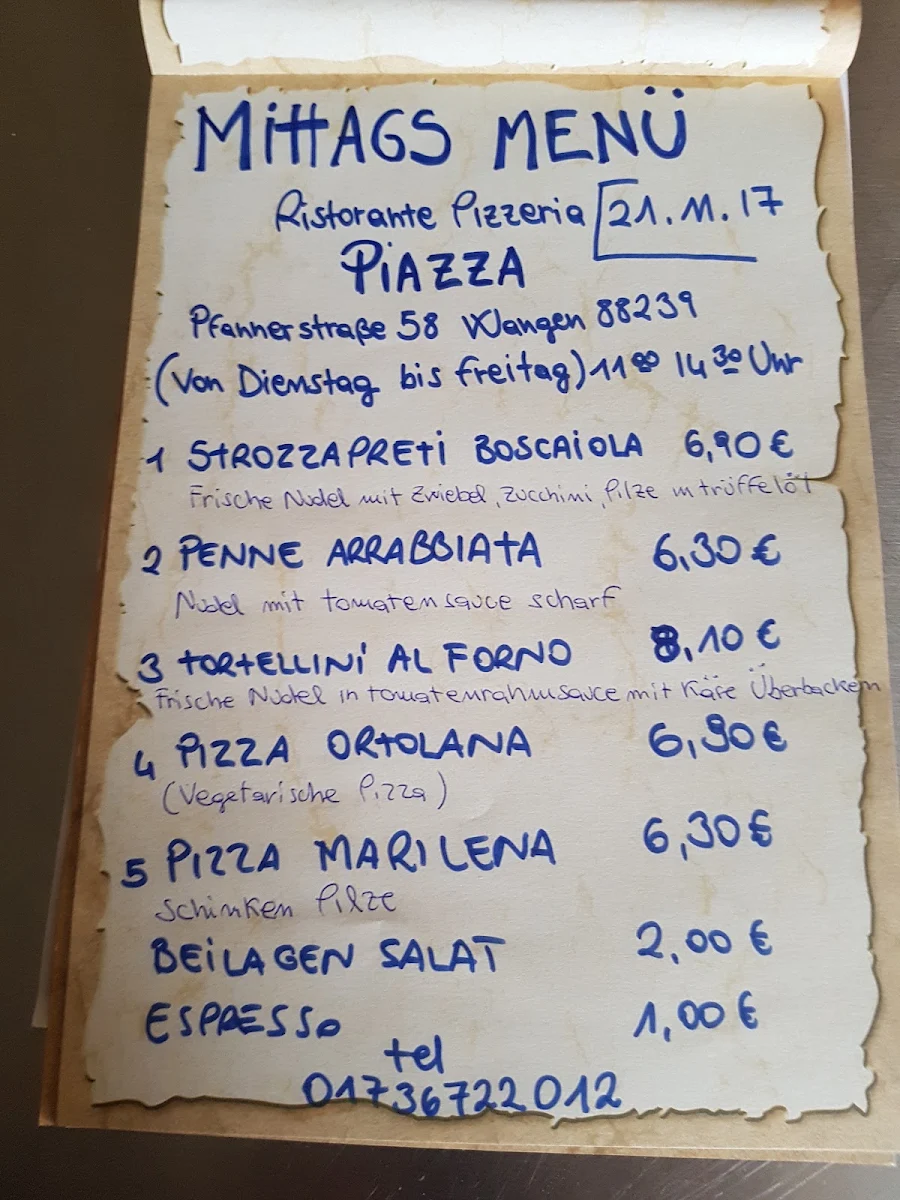 MittAGS MENÜ
Ristorante Pizzeria 21.11.17
PiAZZA
Pfannerstraße 58 Wangen 88239
(Von Dienstag bis freitag) 11⁰⁰ 14³⁰ Uhr
1 StROZZAPREti BOSCAiOLA 6,90 €
Frische Nudel mit Zwiebel, Zucchini, Pilze in trüffelöl
2 PENNE ARRABBIAtA 6,30 €
Nudel mit tomatensauce scharf
3 tORtELLINi AL FORNO 8,10 €
Frische Nudel in tomatenrahmsauce mit Käse Überbacken
4 PIZZA ORtOLANA 6,90 €
(Vegetarische Pizza)
5 PIZZA MARILENA 6,30 €
Schinken Pilze
BEiLAGEN SALAT 2,00 €
ESPRESSO 1,00 €
tel
01736722012